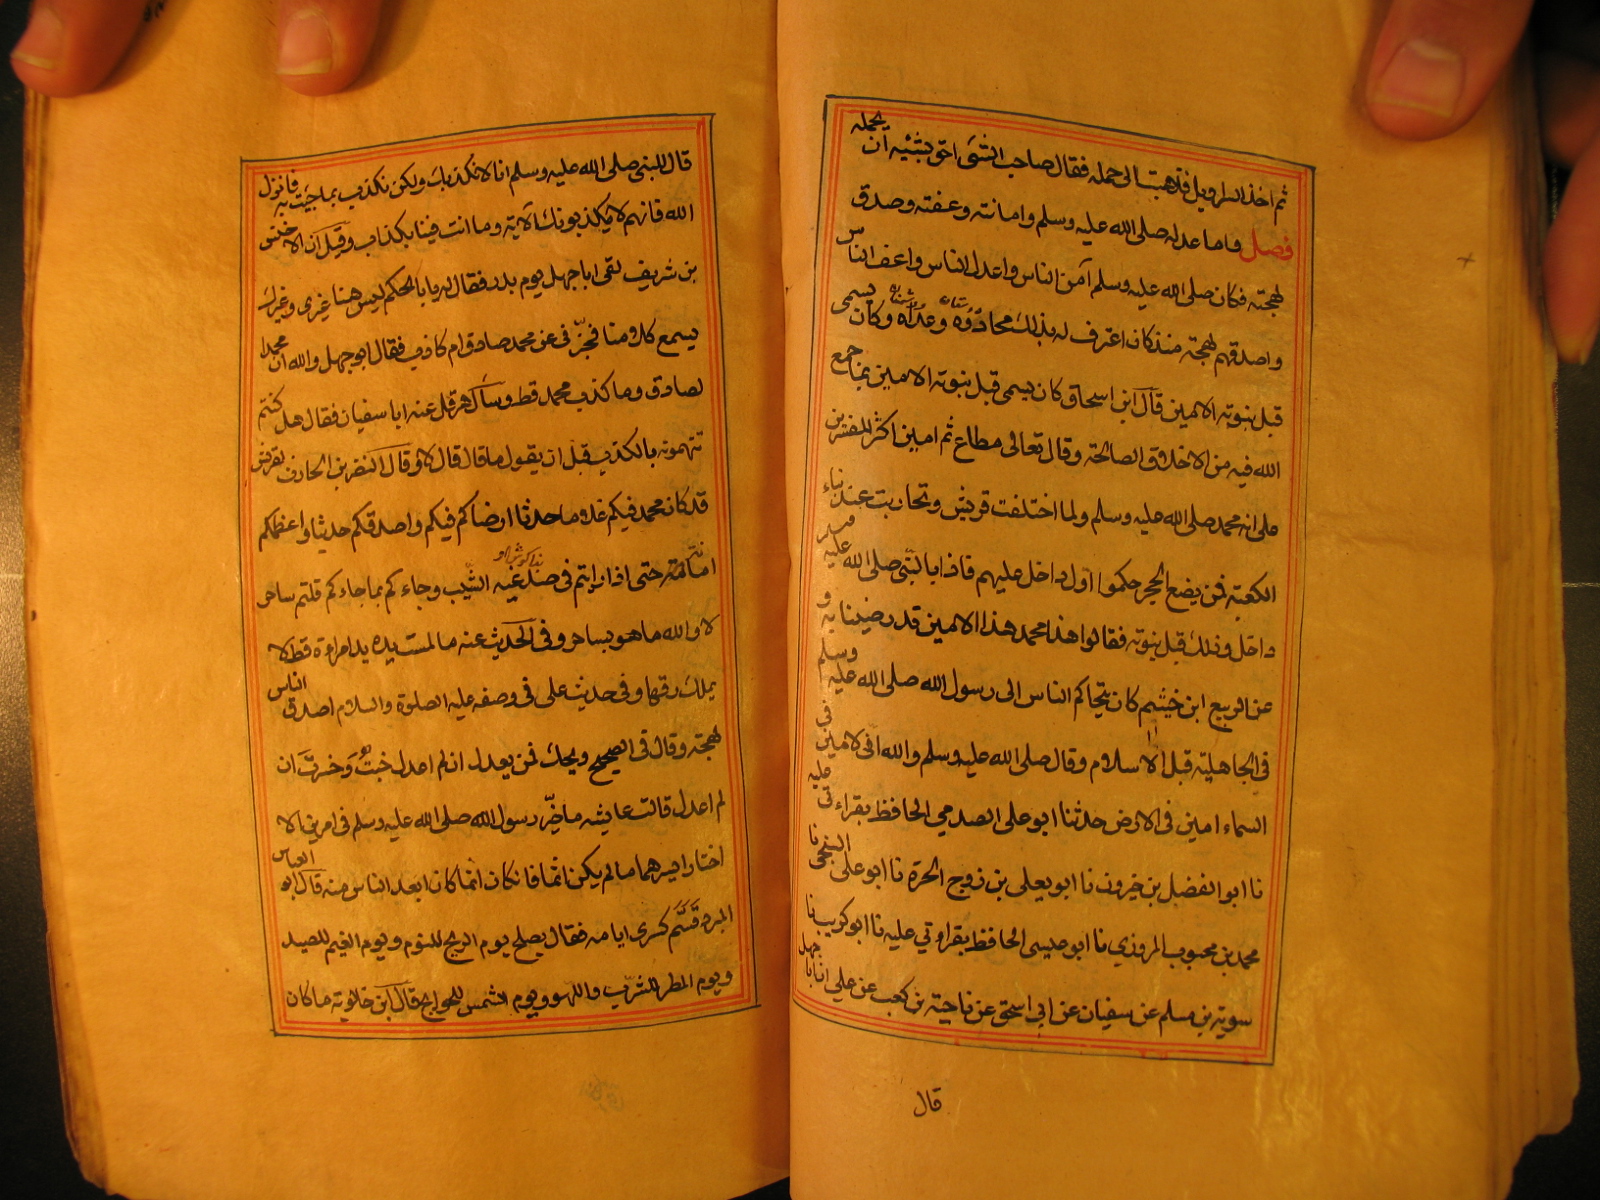 ثم اخذ السراويل فذهبت الى حمله فقال صاحب الشئ احق بشئيه ان يحمله
فصل واما عدله صلى الله عليه وسلم وامانته وعفته وصدق
لهجته فكان صلى الله عليه وسلم آمن الناس واعدل الناس واعف الناس
واصدقهم لهجته منذ كان اعترف له بذلك محادوه وعداه وكان يسمى
قبل بنوته الامين قال ابن اسحاق كان يسمى قبل بنوته الامين بما جمع
الله فيه من الاخلاق الصالحة وقال تعالى مطاع ثم امين اكثر المفسرين
على انه محمد صلى الله عليه وسلم ولما اختلفت قريش وتحاربت عند بناء
الكعبته فمن يضع الحجر حكموا اول داخل عليهم فاذا بالنبى صلى الله عليه وسلم
داخل وذلك قبل بنوته فقالوا هذا محمد هذا الامين قد رضينا به و
عن الربيع ابن خيثم كان يتحاكم الناس الى رسول الله صلى الله عليه وسلم
فى الجاهلية قبل الاسلام وقال صلى الله عليه وسلم والله انى لامين فى
السماء امين فى الارض حدثنا ابو على الصدمي الحافظ بقراءتى عليه
نا ابو الفضل بن خيرون نا ابو يعلى بن زوج الحرة نا ابو على السنجى نا
محمد بن محبوب المروزي نا ابو عيسى الحافظ بقراءتي عليه نا ابو كريب نا
سوية بن مسلم عن سفيان عن ابي اسحق عن ناجية بن كعب عن على ان ابا جهل
قال
قال للنبى صلى الله عليه وسلم انا لا نكذبك ولكن نكذب بما جيت به فانزل
الله فانهم لا يكذبونك الآية وما انت فينا بكذاب وقيل ان الاخنس
بن شريف لقى ابا جهل يوم بدر فقال له يا با الحكم ليس هنا غيرى وغيرك
يسمع كلامنا فخبرنى عن محمد صادق ام كاذب فقال ابو جهل والله ان محمدا
لصادق وما كذب محمد قط وسأل هرقل عنه ابا سفيان فقال هل كنتم
تتهمونه بالكذب قبل ان يقول ما قال قال لا وقال النضر بن الحارث لقريش
قد كان محمد فيكم غلاما حدثا ارضاكم فيكم واصدقكم حديثا واعظمكم
امانته حتى اذا رايتم فى صدغيه الشيب وجاءكم بما جاءكم قلتم ساحر
لا والله ما هو بساحر وفى الحديث عنه ما لمست يده يد امراءة قط لا
يملك رقها وفى حديث على فى وصفه عليه الصلوة والسلام اصدق الناس
لهجته وقال فى الصحيح ويحك فمن يعدل ان لم اعدل خبت وخسرت ان
لم اعدل قالت عايشه ما خير رسول الله صلى الله عليه وسلم فى امرين الا
اختار ايسرهما ما لم يكن اثما فان كان اثما كان ابعد الناس منه قال ابو العباس
المبرد قسم كسرى ايامه فقال يصلح يوم الريح للنوم ويوم الغيم للصيد
ويوم المطر للشرب واللهو ويوم الشمس للحوايج قال ابن خالويه ما كان